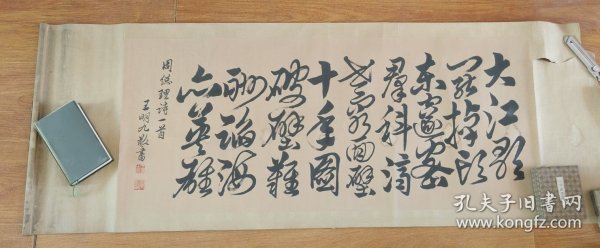 大江歌
罷掉頭
東邃密
羣科濟
世窮面壁
十年圖
破壁難
酬蹈海
亦英雄
周總理詩一首
王明九敬書
孔夫子旧书网
www.kongfz.com